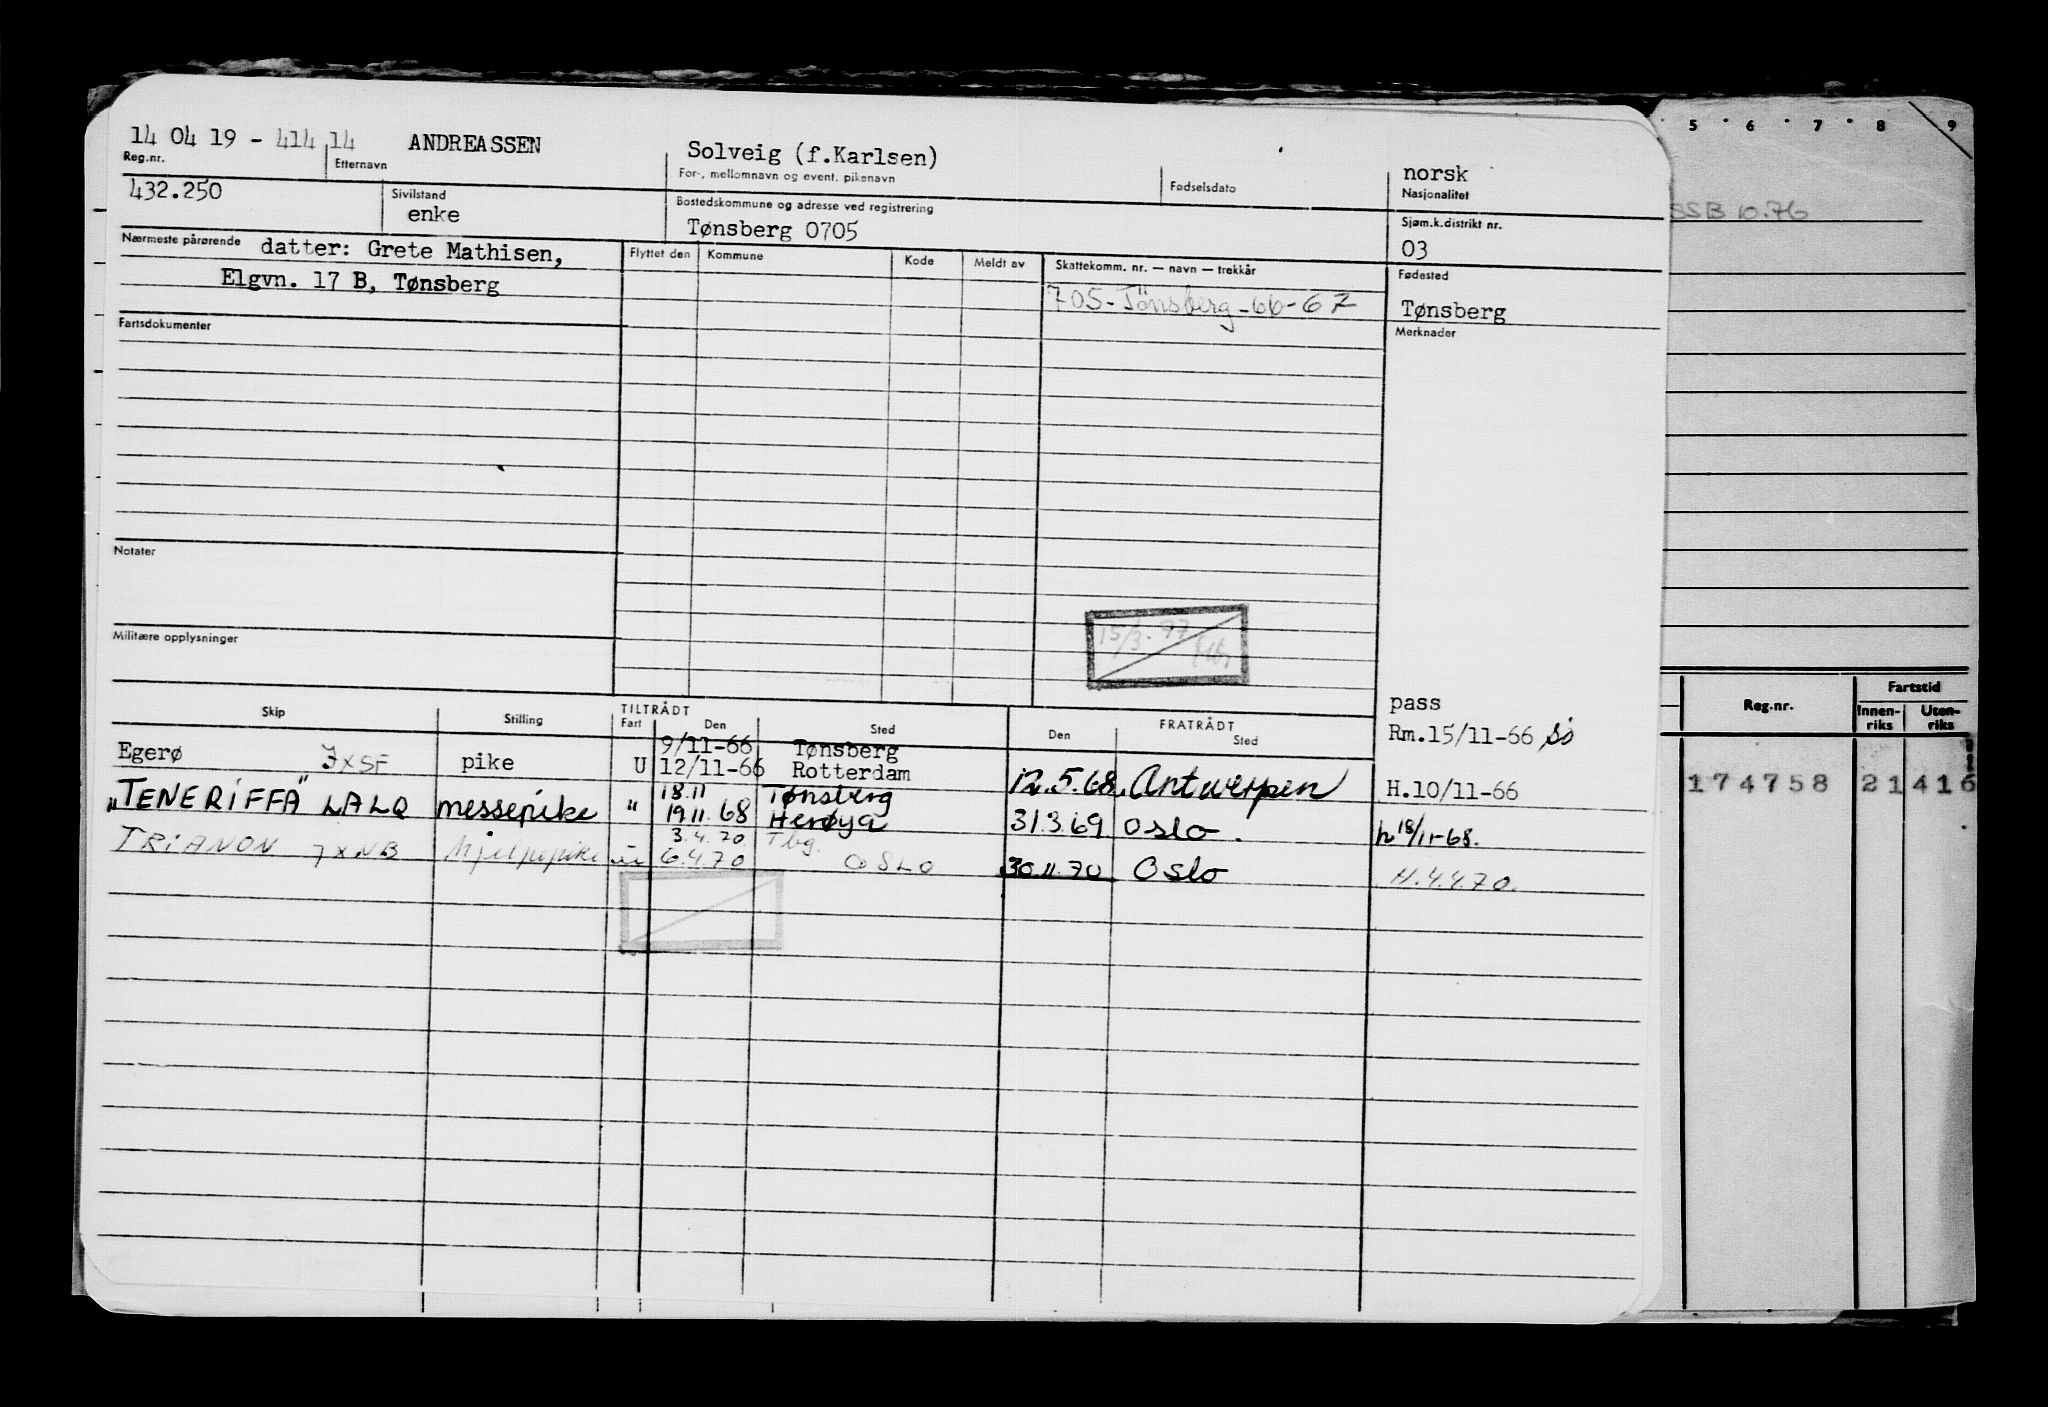 14 04 19 - 414 14 ANDREASSEN Solveig (f.Karlsen) norsk
Reg.nr. Etternavn For-, mellomnavn og event. pikenavn Fødselsdato Nasjonalitet
432.250 Sivilstand Bostedskommune og adresse ved registrering Sjøm.k.distrikt nr.
enke Tønsberg 0705 03
Nærmeste pårørende datter: Grete Mathisen, Flyttet den Kommune Kode Meldt av Skattekomm. nr. — navn — trekkår Fødested
Elgvn. 17 B, Tønsberg 705-Tönsberg-66-67 Tønsberg
Fartsdokumenter Merknader
Notater
15/3-97
Militære opplysninger
pass
Skip Stilling TILTRÅDT Fart Den Sted FRATRÅDT Den Sted Rm.15/11-66
Egerø JXSF pike U 9/11-66 Tønsberg
12/11-66 Rotterdam 12.5.68 Antwerpen H.10/11-66
"TENERIFFA" LALQ messepike " 18.11 Tønsberg
19.11.68 Herøya 31.3.69 Oslo. h 18/11-68.
TRIANON JXNB hjelpepike 3.4.70 Tbg.
6.4.70 OSLO 30.11.70 Oslo H.4.4.70.
5 6 7 8 9
SSB 10.76
Reg.nr. Fartstid
Innen-riks Uten-riks
174758 21 416